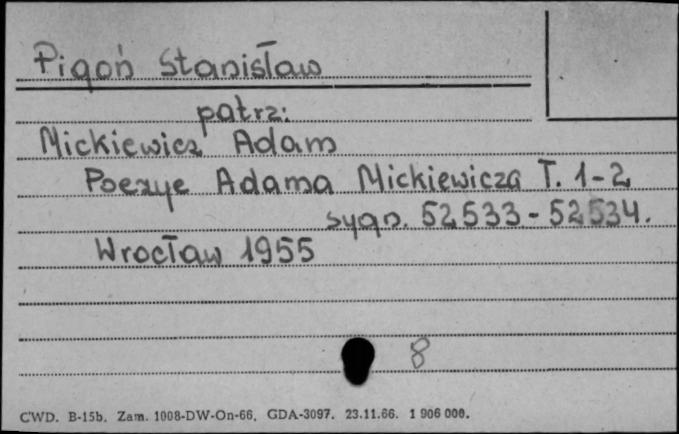 Pigoń Stanisław
patrz:
Mickiewicz Adam
Poezye Adama Mickiewicza T. 1-2
sygn. 52533-52534.
Wrocław 1955
8
CWD. B-15b. Zam. 1008-DW-On-66. GDA-3097. 23.11.66. 1 906 000.